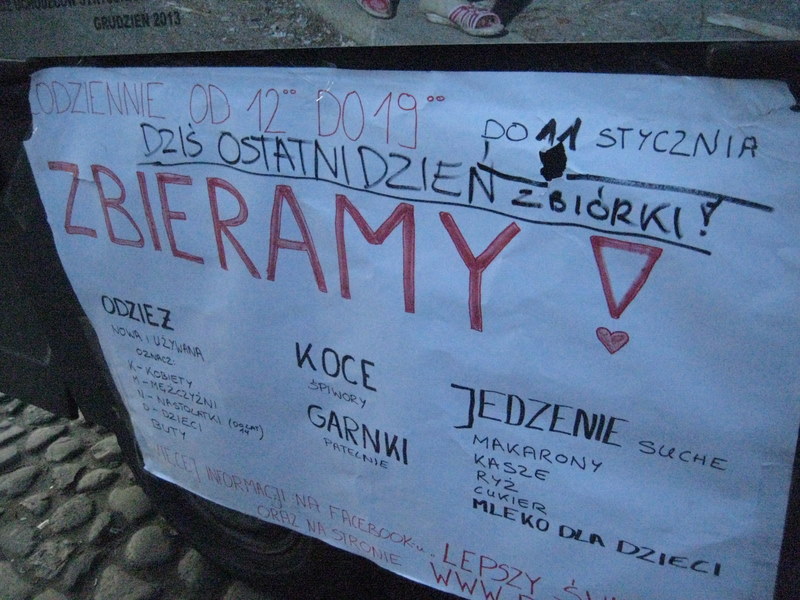 GRUDZIEŃ 2013
CODZIENNIE OD 12°° DO 19°°
DO 11 STYCZNIA
DZIŚ OSTATNI DZIEŃ ZBIÓRKI!
ZBIERAMY!
ODZIEŻ
NOWA I UŻYWANA
OZNACZ:
K - KOBIETY
M - MĘŻCZYŹNI
N - NASTOLATKI
D - DZIECI
BUTY
KOCE
ŚPIWORY
GARNKI
PATELNIE
JEDZENIE SUCHE
MAKARONY
KASZE
RYŻ
CUKIER
MLEKO DLA DZIECI
WIĘCEJ INFORMACJI NA FACEBOOKU. LEPSZY
ORAZ NA STRONIE WWW.